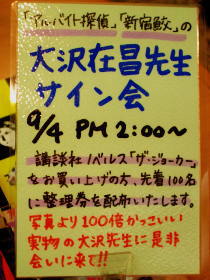 「アルバイト探偵」「新宿鮫」の
大沢在昌先生
サイン会
9/4 PM 2:00〜
講談社ノベルス「ザ・ジョーカー」
をお買い上げの方、先着100名
に整理券を配布いたします。
写真より100倍かっこいい
実物の大沢先生に是非
会いに来て!!